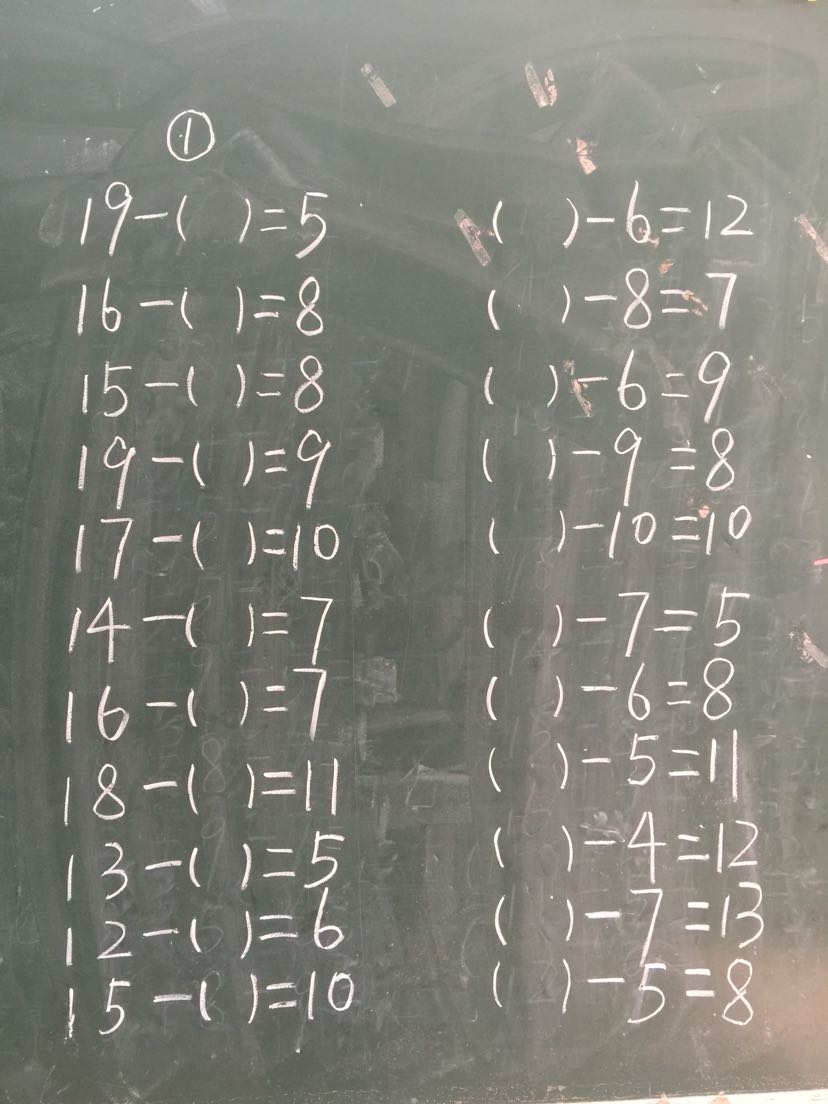 ①
19-( )=5 ( )-6=12
16-( )=8 ( )-8=7
15-( )=8 ( )-6=9
19-( )=9 ( )-9=8
17-( )=10 ( )-10=10
14-( )=7 ( )-7=5
16-( )=7 ( )-6=8
18-( )=11 ( )-5=11
13-( )=5 ( )-4=12
12-( )=6 ( )-7=13
15-( )=10 ( )-5=8